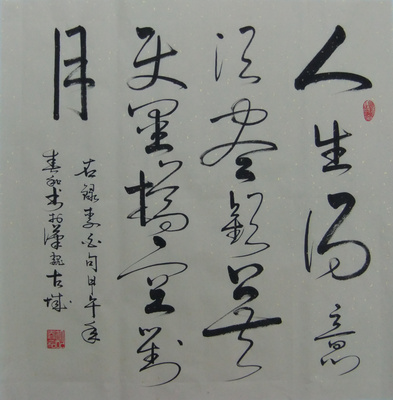 人生得意
須盡歡莫
使金樽空對
月
右録李白句甲午年
古城